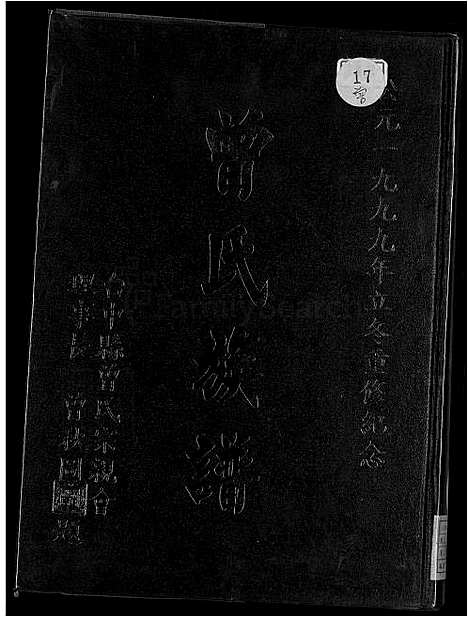 17
曾
元一九九九年立冬重修紀念
曾氏族譜
台中縣曾氏宗親會
理事長 曾秋 題
FamilySearch